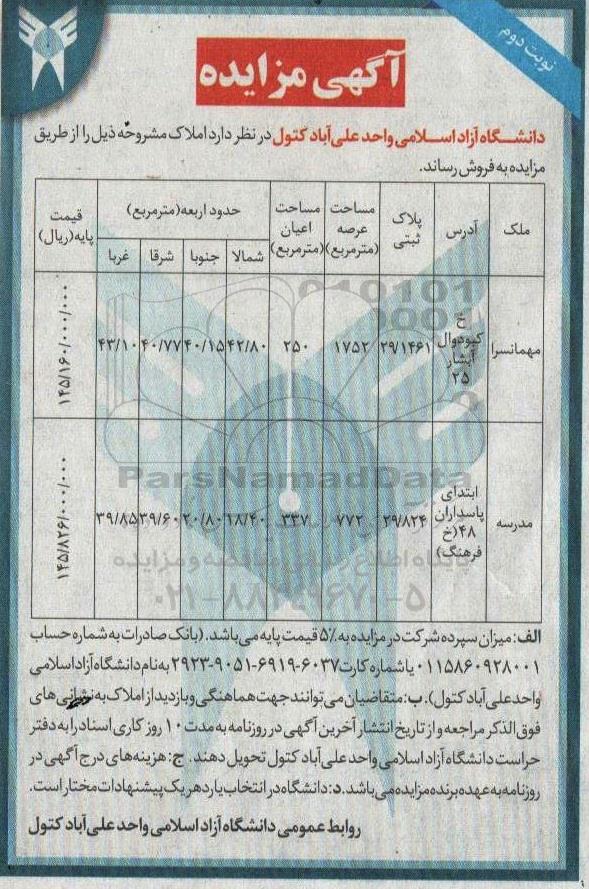 نوبت دوم
آگهی مزایده
دانشگاه آزاد اسلامی واحد علی‌آباد کتول در نظر دارد املاک مشروحه ذیل را از طریق
مزایده به فروش رساند.
ملک | آدرس | پلاک ثبتی | مساحت عرصه (مترمربع) | مساحت اعیان (مترمربع) | حدود اربعه (مترمربع) | قیمت پایه (ریال)
شمالا | جنوبا | شرقا | غربا
مهمانسرا | خ کبودوال آبشار ۲۵ | ۲۹/۱۴۶۱ | ۱۷۵۲ | ۲۵۰ | ۴۲/۸۰ | ۴۰/۱۵ | ۴۰/۷۷ | ۴۳/۱۰ | ۱۴۵/۱۶۰/۰۰۰/۰۰۰
مدرسه | ابتدای پاسداران ۴۸ (خ فرهنگ) | ۲۹/۸۲۴ | ۷۷۲ | ۳۳۷ | ۱۸/۴۰ | ۲۰/۸۰ | ۳۹/۶۰ | ۳۹/۸۵ | ۱۴۵/۸۲۶/۰۰۰/۰۰۰
010101
ParsNamadData
پایگاه اطلاع رسانی مناقصه و مزایده
۰۲۱-۸۸۳۴۹۶۷۰-۵
الف: میزان سپرده شرکت در مزایده به ۵٪ قیمت پایه می‌باشد. (بانک صادرات به شماره حساب
۰۱۱۵۸۶۰۹۲۸۰۰۱ یا شماره کارت ۶۰۳۷-۶۹۱۹-۹۰۵۱-۲۹۲۳ به نام دانشگاه آزاد اسلامی
واحد علی‌آباد کتول). ب: متقاضیان می‌توانند جهت هماهنگی و بازدید از املاک به نشانی‌های
فوق الذکر مراجعه و از تاریخ انتشار آخرین آگهی در روزنامه به مدت ۱۰ روز کاری اسناد را به دفتر
حراست دانشگاه آزاد اسلامی واحد علی‌آباد کتول تحویل دهند. ج: هزینه‌های درج آگهی در
روزنامه به عهده برنده مزایده می‌باشد. د: دانشگاه در انتخاب یا رد هر یک پیشنهادات مختار است.
روابط عمومی دانشگاه آزاد اسلامی واحد علی‌آباد کتول